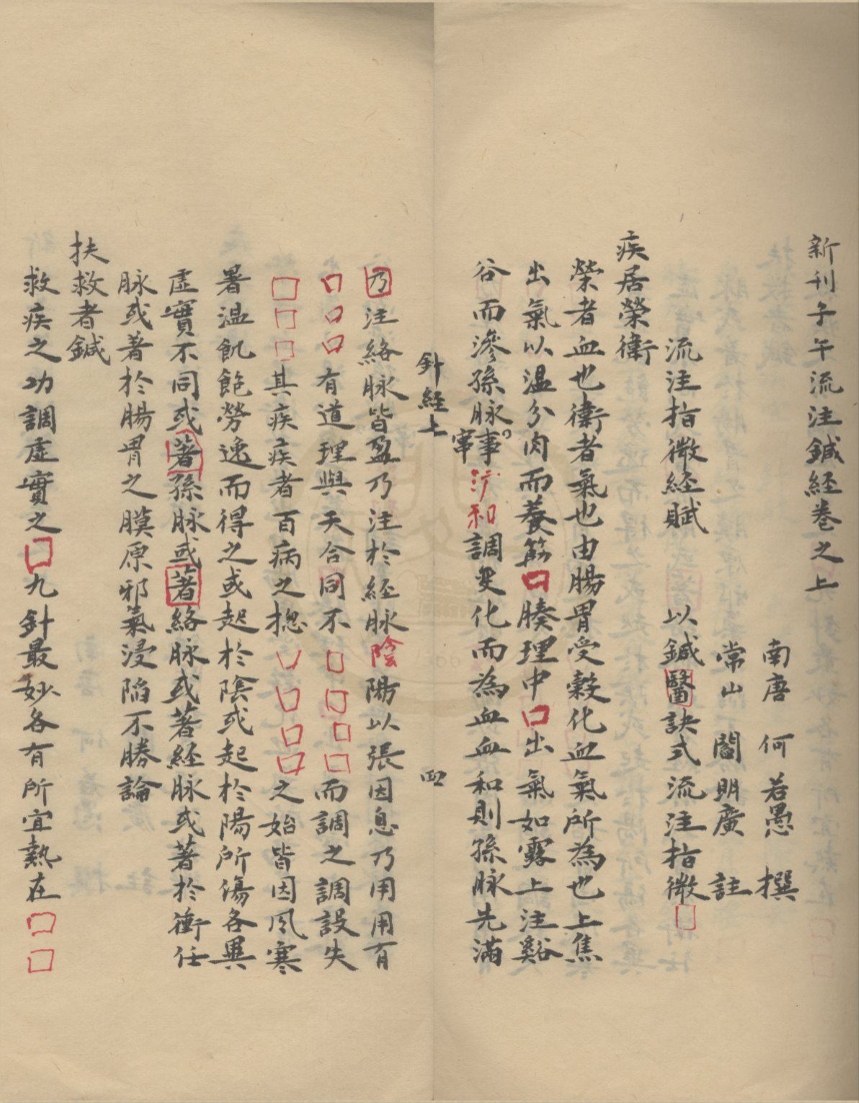 新刊子午流注鍼經卷之上
南唐 何若愚 撰
常山 閻明廣 註
流注指微經賦 以鍼醫訣式流注指微□
疾居榮衛
榮者血也衛者氣也由腸胃受穀化血氣所為也上焦
出氣以溫分肉而養筋□腠理中□出氣如露上注谿
谷而滲孫脉事汴和調變化而為血血和則孫脉先滿
宰
針經上 四
乃注絡脉皆盈乃注於經脉陰陽以張因息乃用用有
□□□有道理與天合同不□□□□而調之調設失
□□□其疾疾者百病之揔□□□□之始皆因風寒
暑溫飢飽勞逸而得之或起於陰或起於陽所傷各異
虛實不同或著孫脉或著絡脉或著經脉或著於衝任
脉或著於腸胃之膜原邪氣浸陷不勝論
扶救者鍼
救疾之功調虛實之□九針最妙各有所宜熱在□□